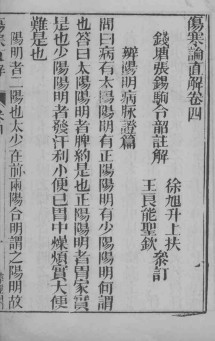 傷寒論直解卷四
錢唐張錫駒令韶註解
徐旭升上扶
王良能聖欽
叅訂
辨陽明病脉證篇
問曰病有太陽陽明有正陽陽明有少陽陽明何謂
也答曰太陽陽明者脾約是也正陽陽明者胃家實
是也少陽陽明者發汗利小便已胃中燥煩實大便
難是也
陽明者二陽也太少在前兩陽合明謂之陽明故